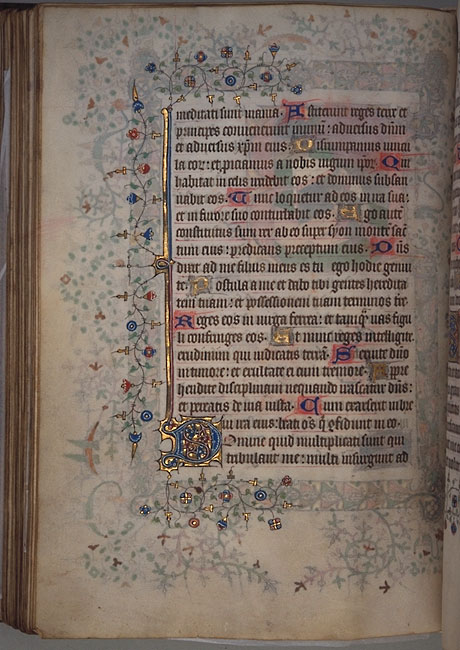 meditati sunt inania. Astiterunt reges terre et
principes convenerunt in unum: adversus dnm
et adversus xpm eius. Disrumpamus vincu
la eor: et piciamus a nobis iugum ipor. Qui
habitat in celis irridebit eos: et dominus subsan
nabit eos. Tunc loquetur ad eos in ira sua:
et in furore suo conturbabit eos. Ego aute
constitutus sum rex ab eo super syon monte sac
tum eius: predicans preceptum eius. Dns
dixit ad me filius meus es tu ego hodie genui
te. Postula a me et dabo tibi gentes heredita
tem tuam: et possessionem tuam terminos tre.
Reges eos in virga ferrea: et tanq vas figu
li confringes eos. Et nunc reges intelligite
erudimini qui iudicatis terra. Servite dno
in timore: et exultate ei cum tremore. Appre
hendite disciplinam nequando irascatur dns:
et pereatis de via iusta. Cum exarserit in bre
vi ira eius: beati os q cfidunt in eo.
Domine quid multiplicati sunt qui
tribulant me: multi insurgunt ad